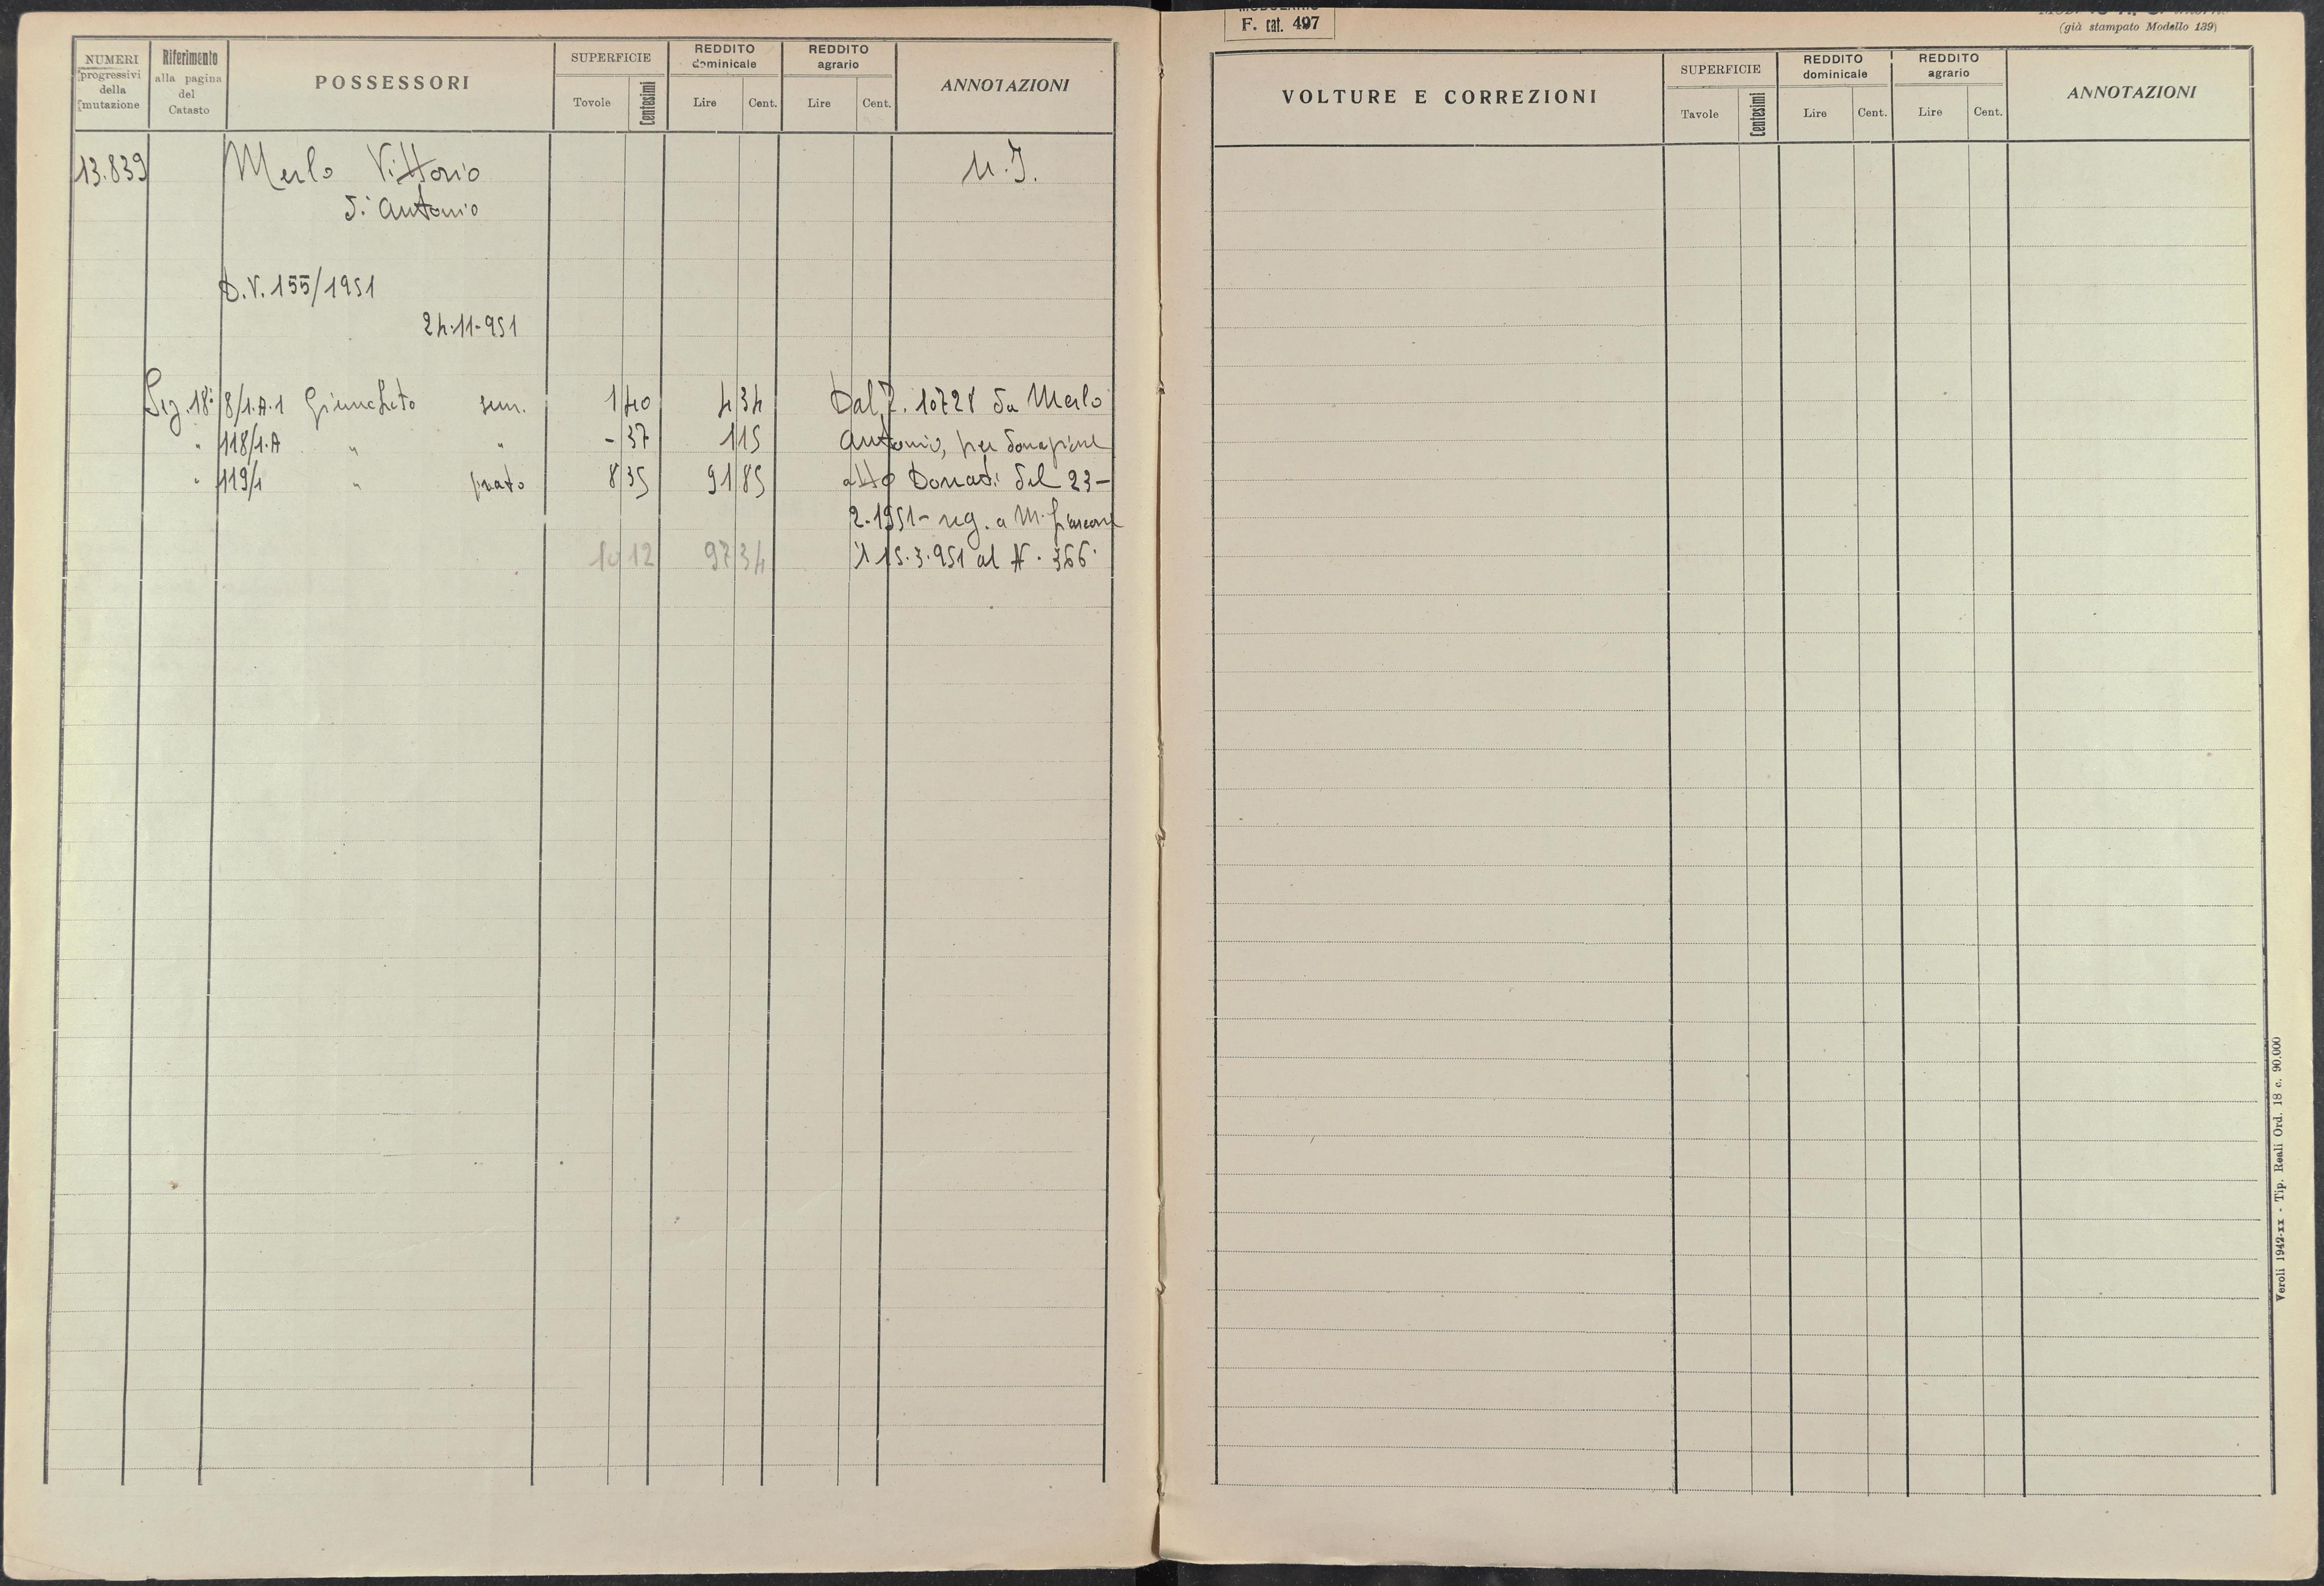 NUMERI progressivi della mutazione
Riferimento alla pagina del Catasto
POSSESSORI
SUPERFICIE
Tavole Centesimi
REDDITO dominicale
Lire Cent.
REDDITO agrario
Lire Cent.
ANNOTAZIONI
13.839 Merlo Vittorio
di Antonio
D.V. 155/1951
24-11-951
Sez. 18ª 8/1.A.1 Giuncheto sem. 1 40 4 34 Dal P. 10728 da Merlo
" 118/1.A " " - 37 1 15 Antonio, per donazione
" 119/1 " prato 8 35 91 85 atto Donati del 23-
2-1951 - reg. a M.
10 12 97 34 il 15.3.951 al N. 366
F. cat. 497
(già stampato Modello 139)
VOLTURE E CORREZIONI
SUPERFICIE
Tavole Centesimi
REDDITO dominicale
Lire Cent.
REDDITO agrario
Lire Cent.
ANNOTAZIONI
Veroli 1942-XX - Tip. Reali Ord. 18 c. 90.000